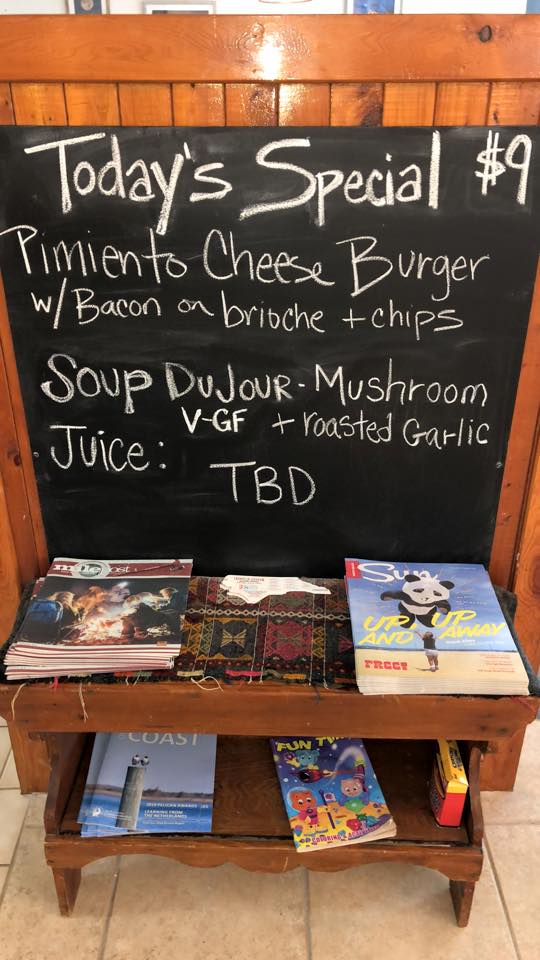 Today's Special $9
Pimiento Cheese Burger
w/ Bacon on brioche + chips
Soup DuJour - Mushroom
V-GF + roasted Garlic
Juice:
TBD
milepost
Sun
UP, UP
AND AWAY
FREE!
COAST
LEARNING FROM
THE NETHERLANDS
FUN TIME
COLORING & ACTIVITY